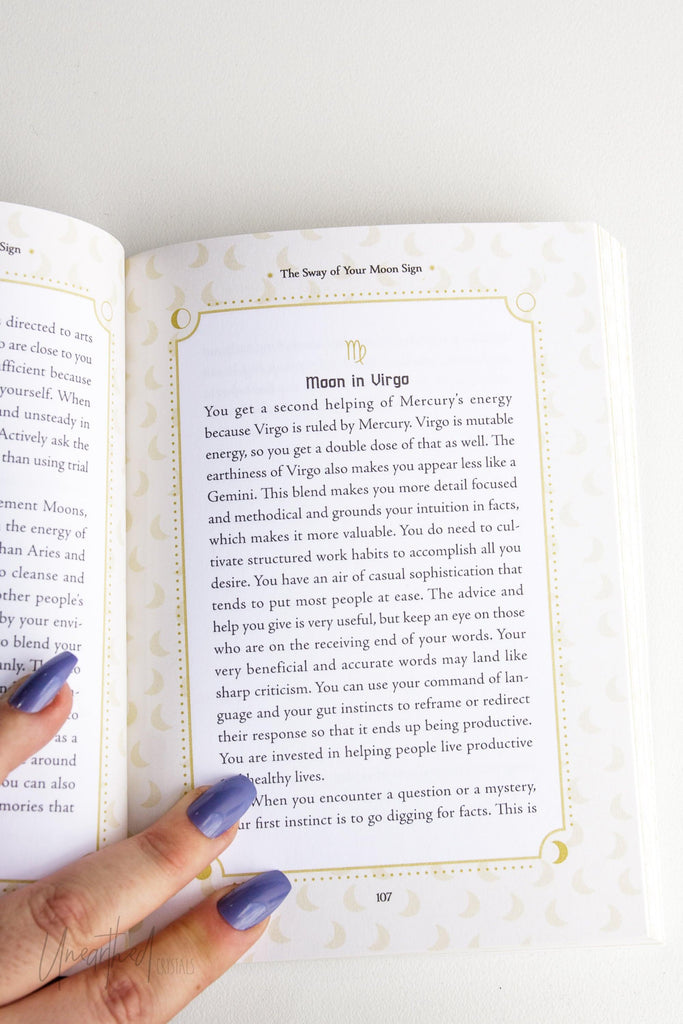 Sign
directed to arts
o are close to you
fficient because
yourself. When
nd unsteady in
Actively ask the
than using trial
ement Moons,
the energy of
han Aries and
o cleanse and
other people's
by your envi-
to blend your
as a
around
ou can also
mories that
The Sway of Your Moon Sign
♍
Moon in Virgo
You get a second helping of Mercury's energy
because Virgo is ruled by Mercury. Virgo is mutable
energy, so you get a double dose of that as well. The
earthiness of Virgo also makes you appear less like a
Gemini. This blend makes you more detail focused
and methodical and grounds your intuition in facts,
which makes it more valuable. You do need to cul-
tivate structured work habits to accomplish all you
desire. You have an air of casual sophistication that
tends to put most people at ease. The advice and
help you give is very useful, but keep an eye on those
who are on the receiving end of your words. Your
very beneficial and accurate words may land like
sharp criticism. You can use your command of lan-
guage and your gut instincts to reframe or redirect
their response so that it ends up being productive.
You are invested in helping people live productive
healthy lives.
When you encounter a question or a mystery,
ur first instinct is to go digging for facts. This is
107
Unearthed
CRYSTALS